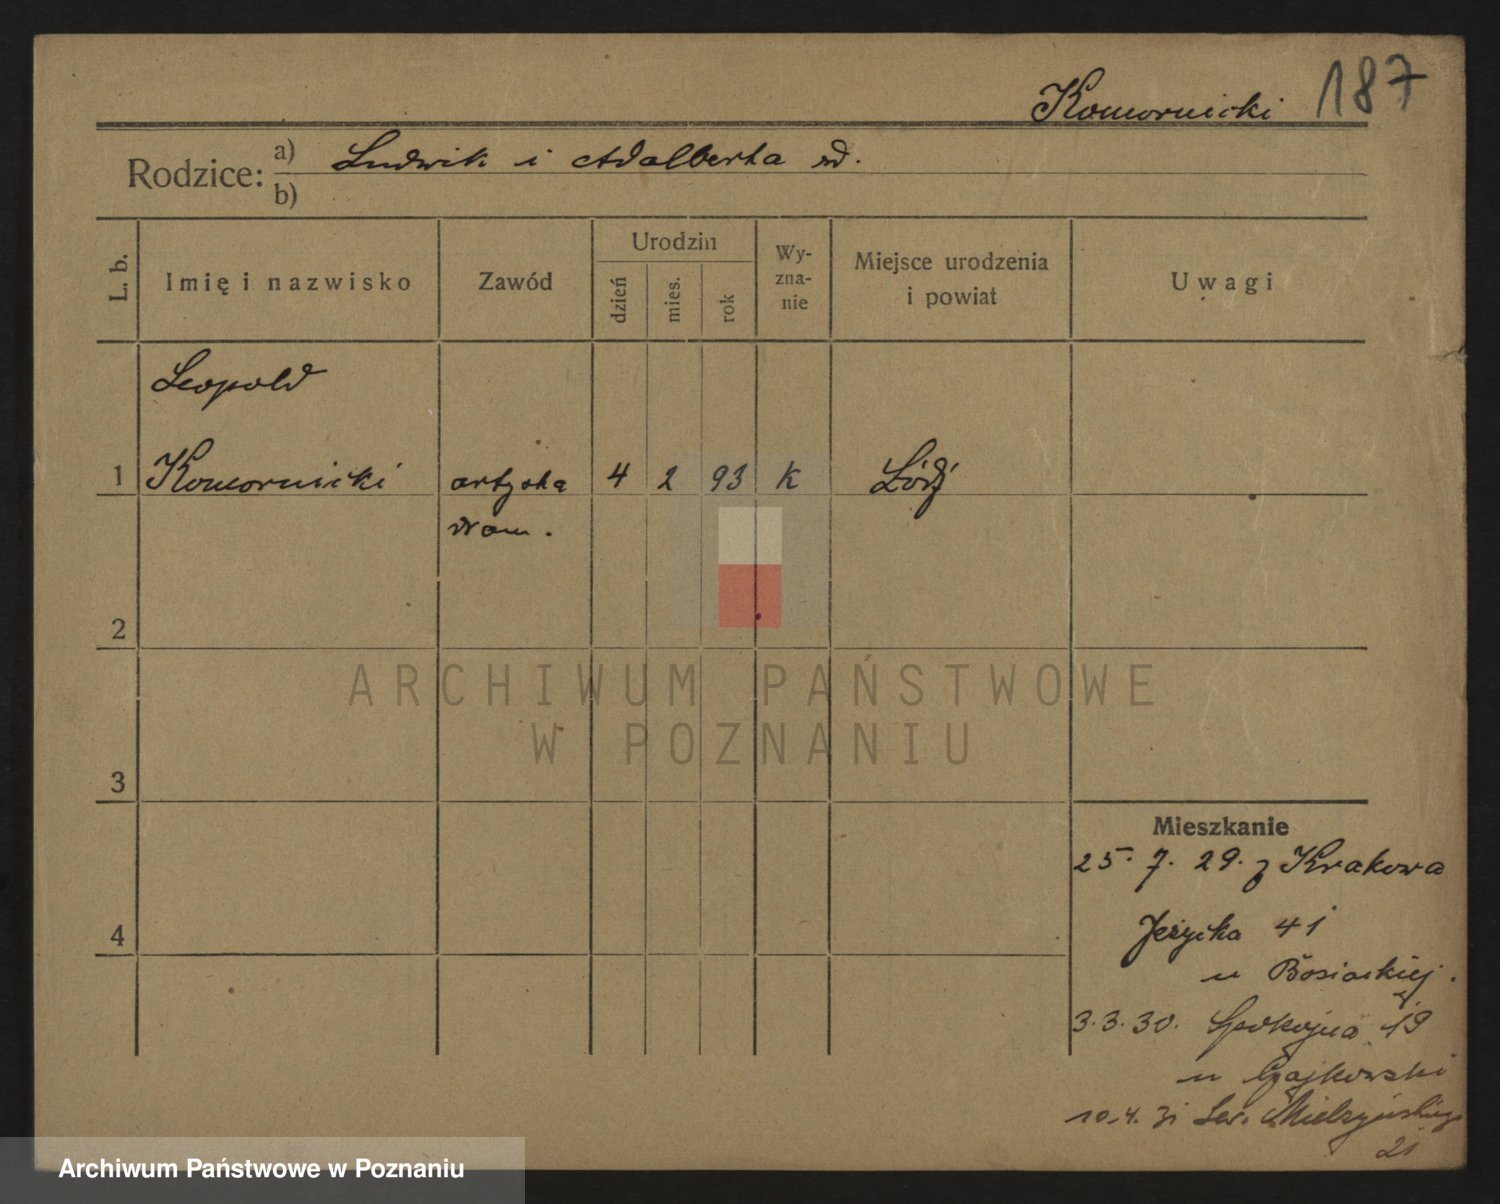 Komornicki 187
Rodzice: a) Ludwik i Adalberta
b)
L. b. Imię i nazwisko Zawód Urodzin dzień mies. rok Wy-zna-nie Miejsce urodzenia i powiat Uwagi
Leopold
1 Komornicki artysta 4 2 93 k Łódź
dram.
2
ARCHIWUM PAŃSTWOWE
W POZNANIU
3
Mieszkanie
25. 7. 29. z Krakowa
4 Jeżycka 41
u Bosiackiej.
3. 3. 30. Spokojna 19
u Gajkowski
10. 4. 31 Sew. Mielżyńskiego
21
Archiwum Państwowe w Poznaniu